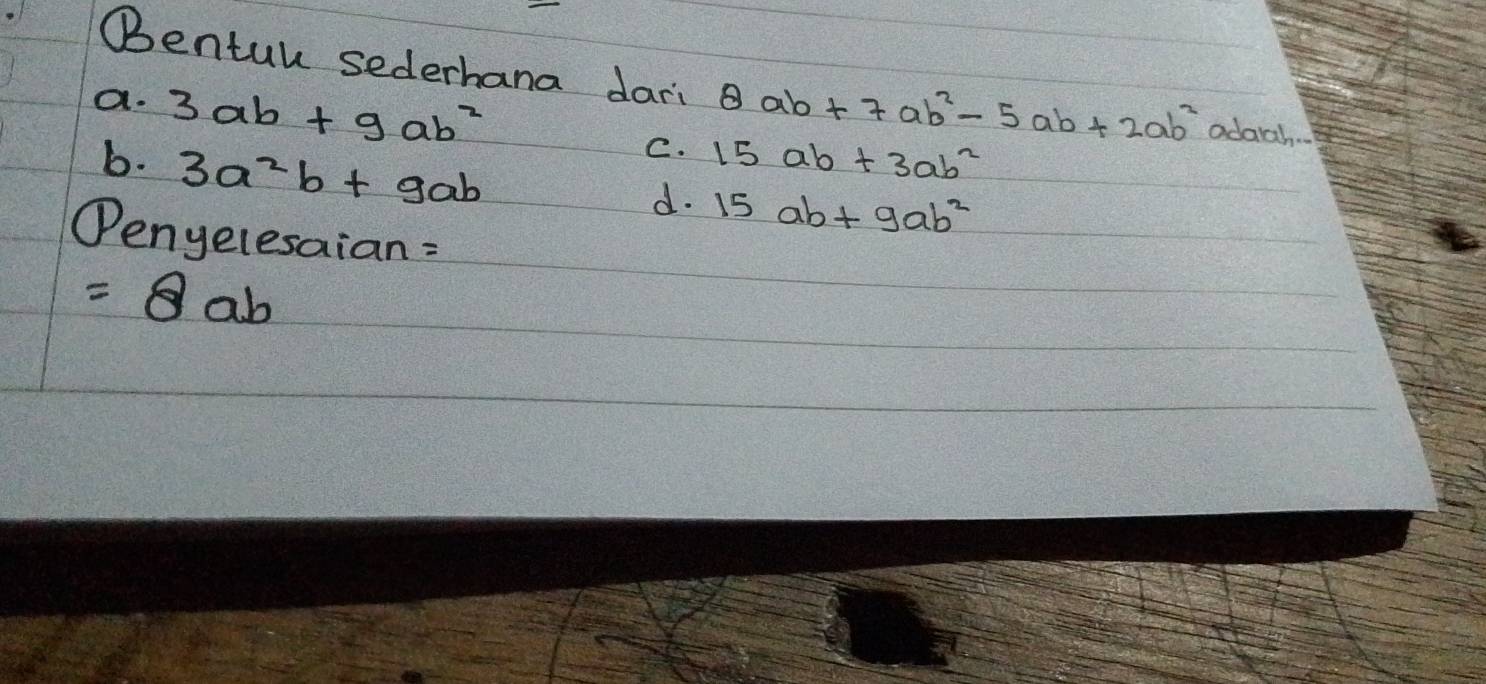 Bentuk sederhana dari 8ab + 7ab² - 5ab + 2ab² adalah...
a. 3ab + 9ab²
b. 3a²b + 9ab
c. 15ab + 3ab²
d. 15ab + 9ab²
Penyelesaian =
= 8ab